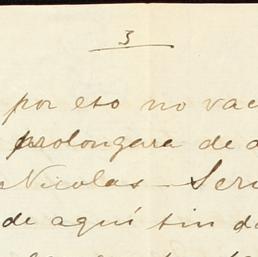 3
por eso no vac
prolongara de a
Nicolas Seri
de aquí sin d